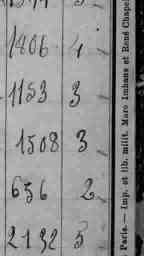 1806 4
1153 3
1508 3
636 2
2132 5
Paris. — Imp. et lib. milit. Marc Imhaus et René Chapel